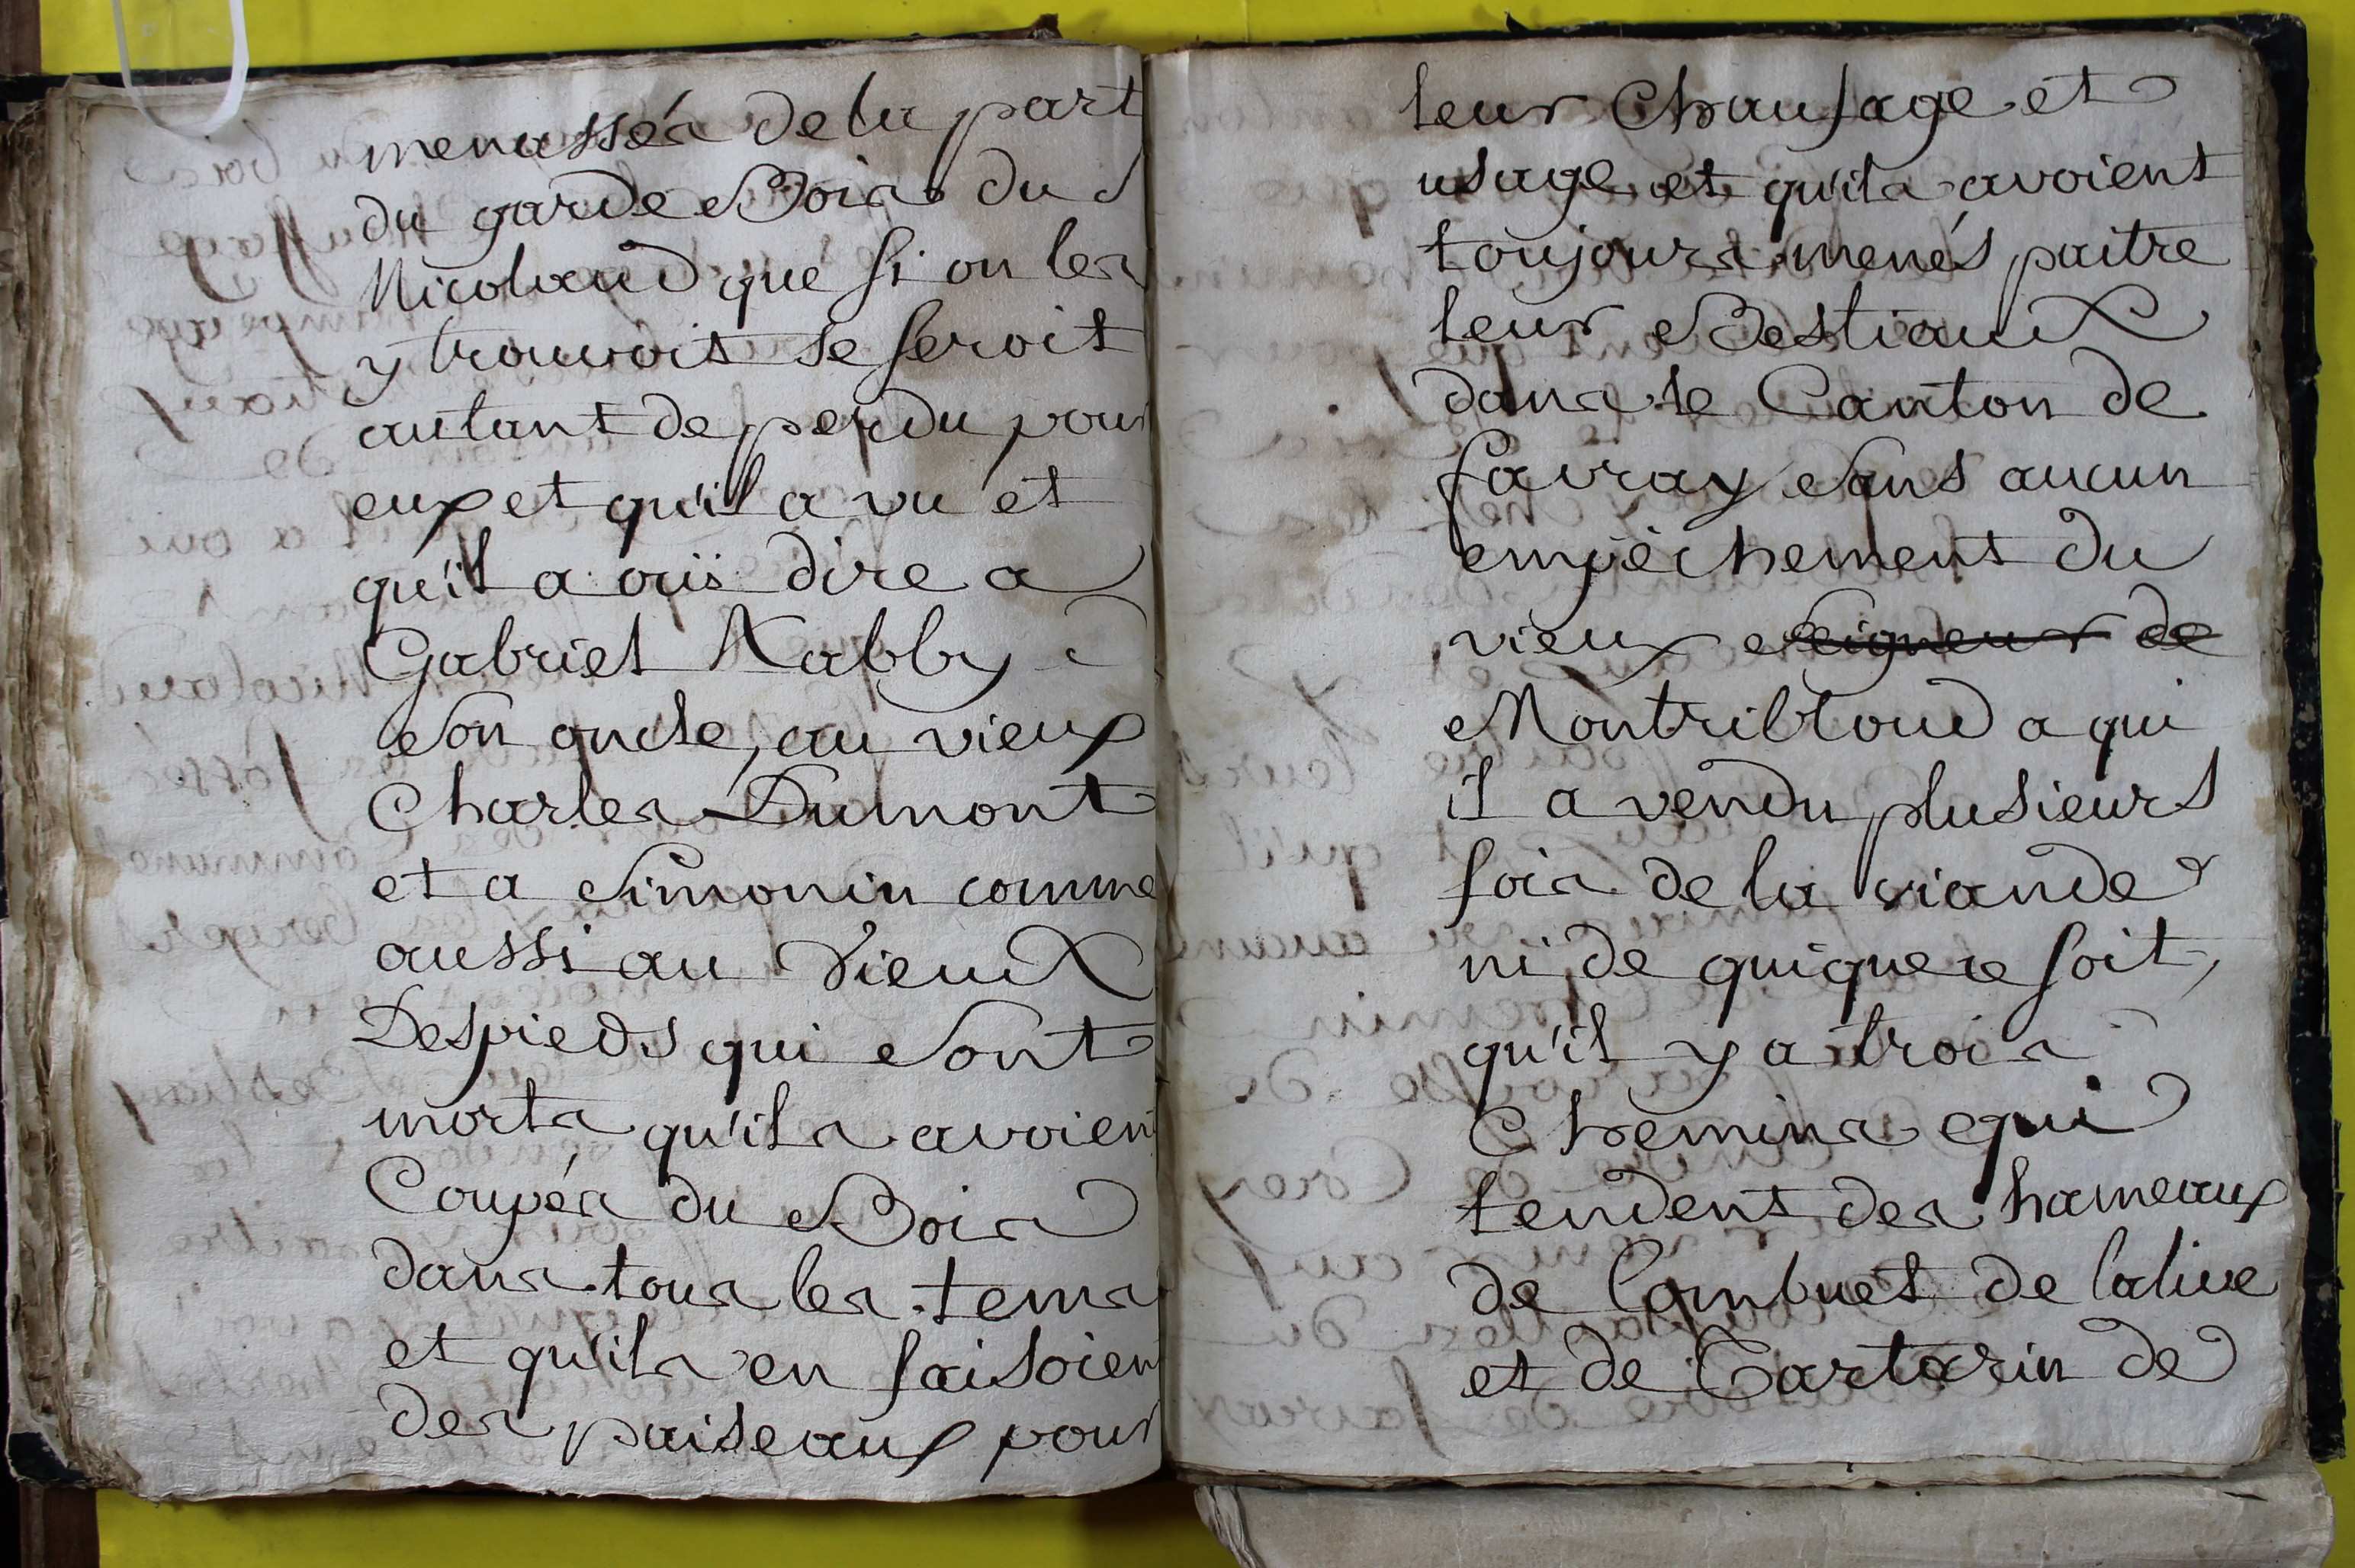 menassés de la part
du garde Bois du S
Nicolaud que si on les
y trouvoit se seroit
autant de perdu pour
eux et qu'il a vu et
qu'il a ouï dire a
Gabriel Nabby
son oncle, au vieux
Charles Dumont
et a Simonin comme
aussi au Vieux
Despieds qui sont
morts qu'ils avoien
Coupés du Bois
dans tous les tems
et qu'ils en faisoien
des paiseaux pour
leur Chaufage et
usage et qu'ils avoient
toujours menés paitre
leur Bestiaux
dans le Canton de
favray sans aucun
empêchement du
vieux seigneur de
Montribloud a qui
il a vendu plusieurs
fois de la viande
ni de quique ce soit,
qu'il y a trois
Chemins qui
tendent des hameaux
de Combuet de lalive
et de Tartarin de